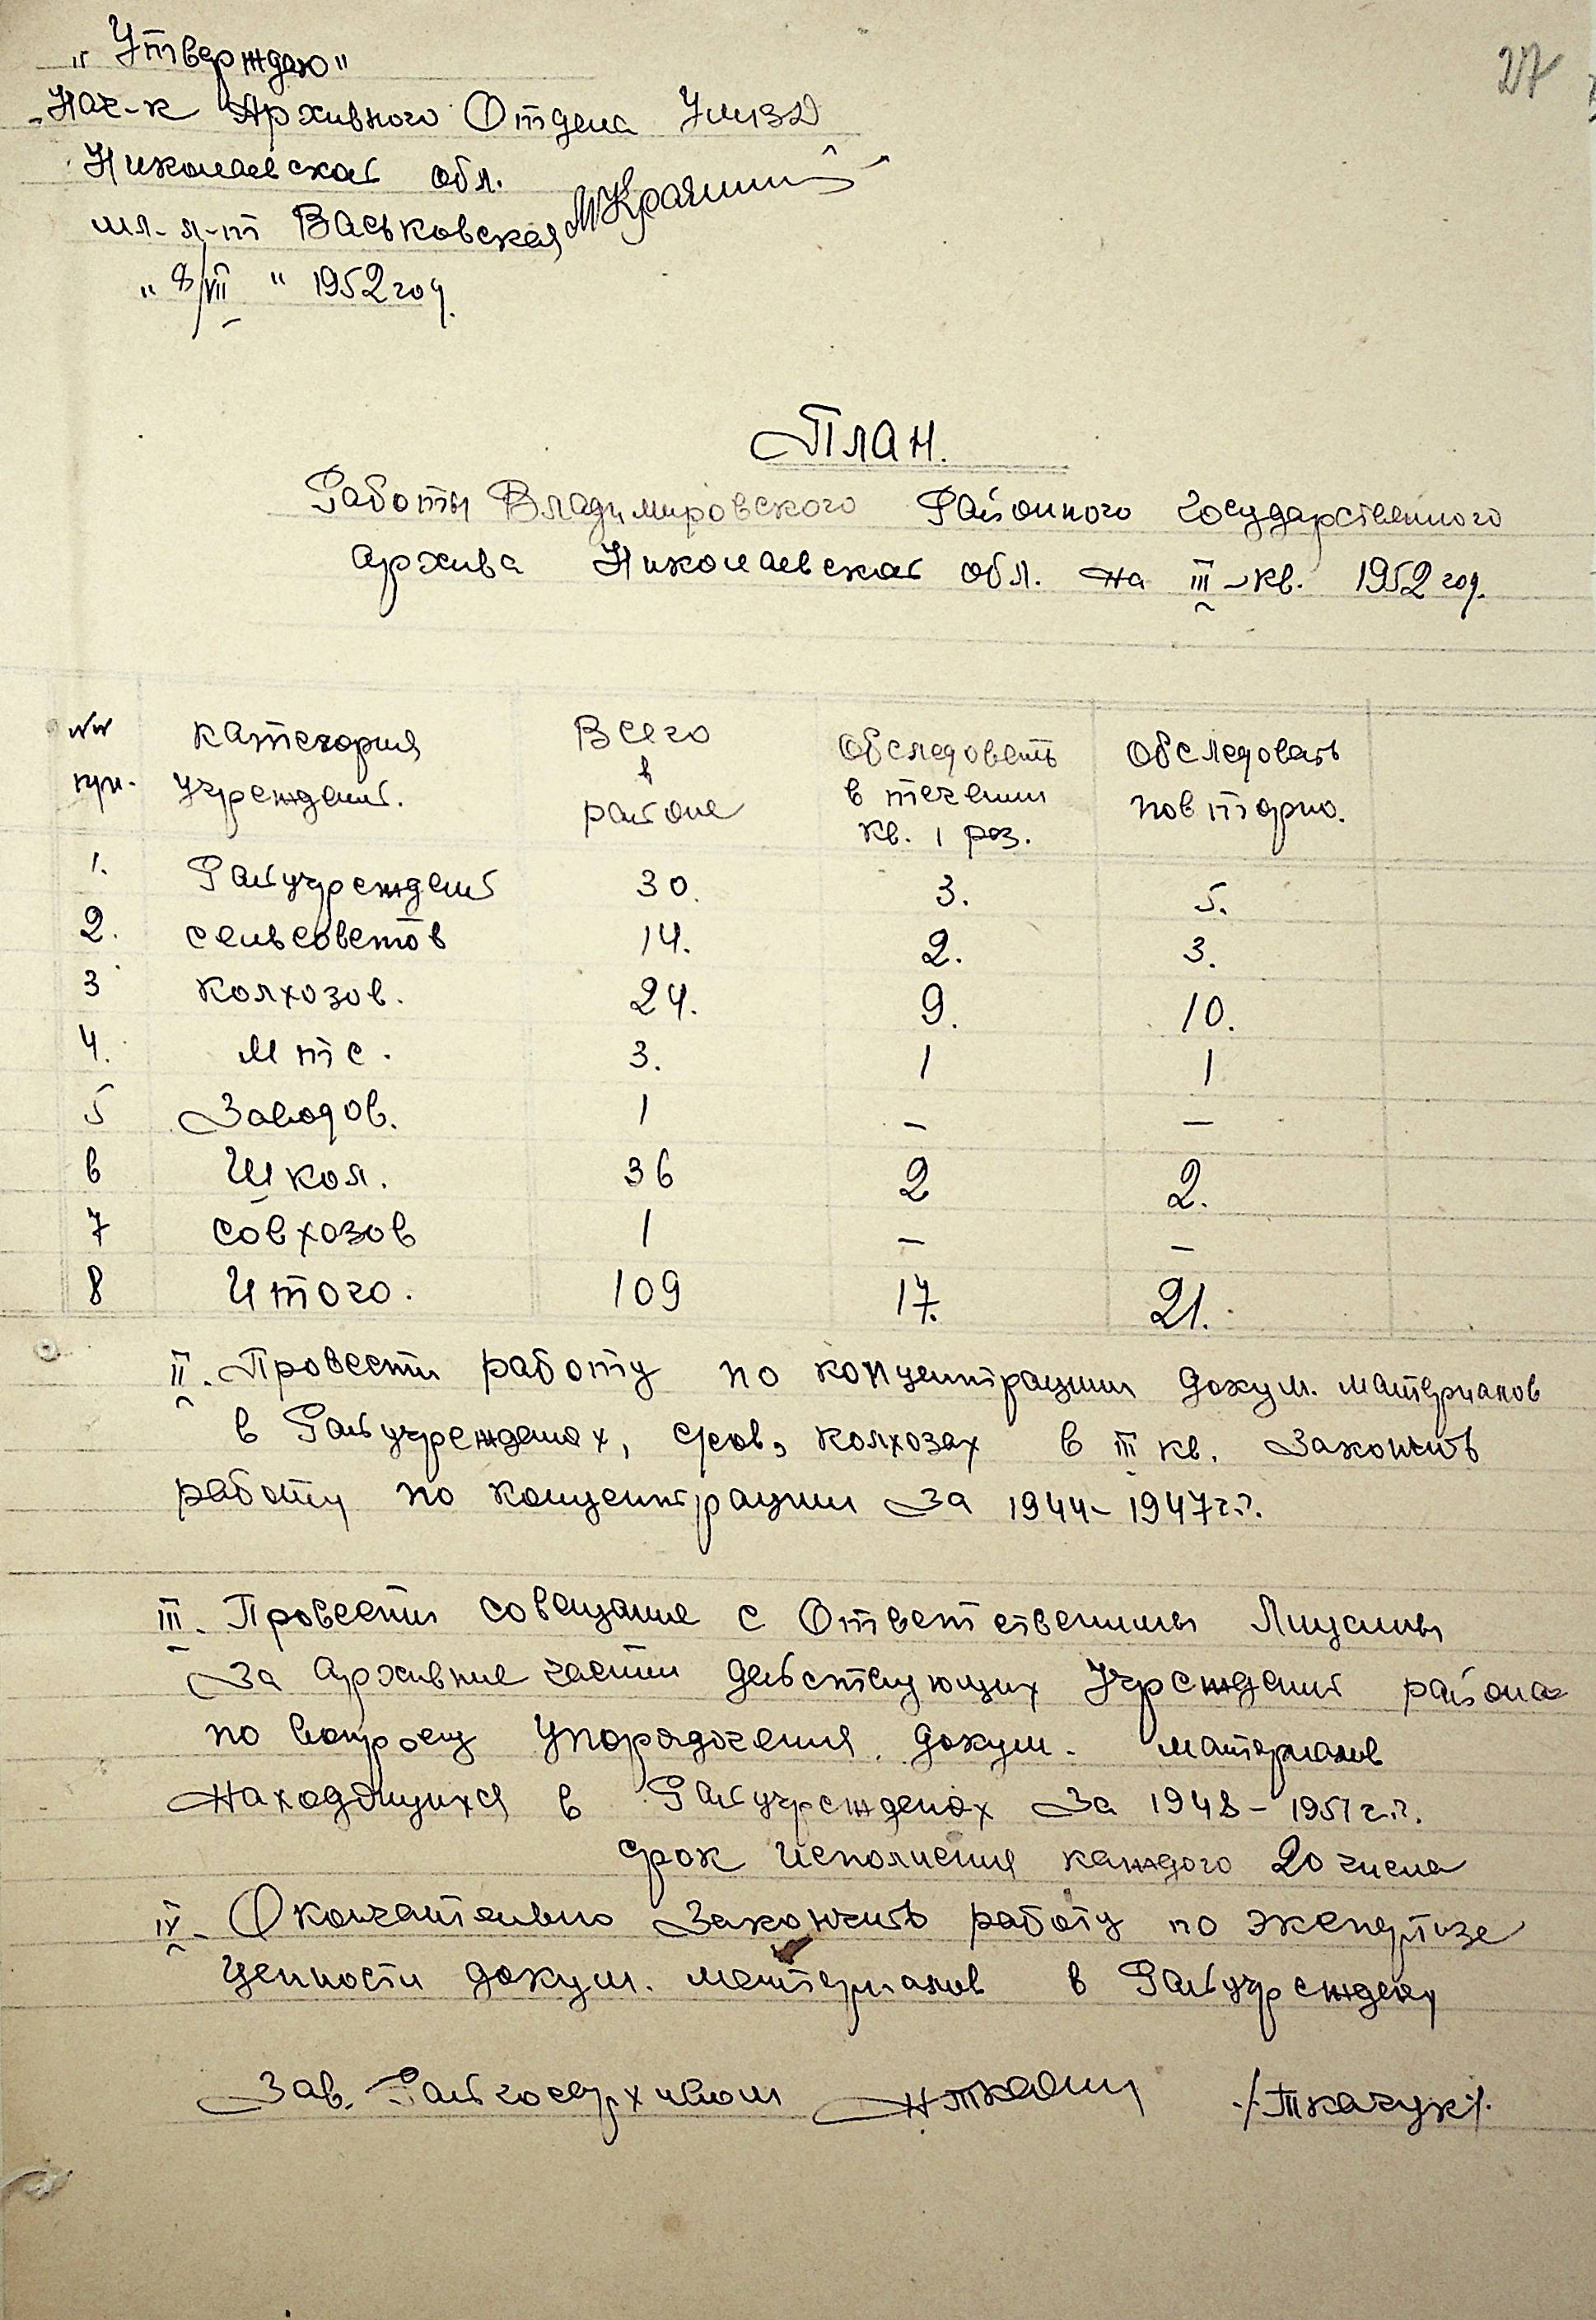 27
„Утверждаю"
Нач-к Архивного Отдела УМГБ
Николаевской обл.
мл. л-т Васьковская
„8/VII" 1952 год.
План.
Работы Владимировского Районного Государственного
архива Николаевской обл. на III-кв. 1952 год.
№№ пп. | категория учреждений. | Всего в районе | Обследовать в течении кв. 1 раз. | Обследовать повторно.
1. Райучреждений 30. 3. 5.
2. сельсоветов 14. 2. 3.
3 колхозов. 24. 9. 10.
4. Мтс. 3. 1 1
5 Заводов. 1 – –
6 Школ. 36 2 2.
7 совхозов 1 – –
8 Итого. 109 17. 21.
II. Провести работу по концентрации докум. материалов
в Райучрежденях, колхозах в III кв. Закончить
работу по концентрации за 1944-1947 г.г.
III. Провести совещание с Ответственными Лицами
За архивные части действующих Учреждений района
по вопросу упорядочения докум. материалов
Находящихся в Райучрежденях за 1948-1951 г.г.
Срок исполнения каждого 20 числа
IV. Окончательно Закончить работу по экспертизе
ценности докум. материалов в Райучрежден
Зав. Райгосархивом /Ткачук/.